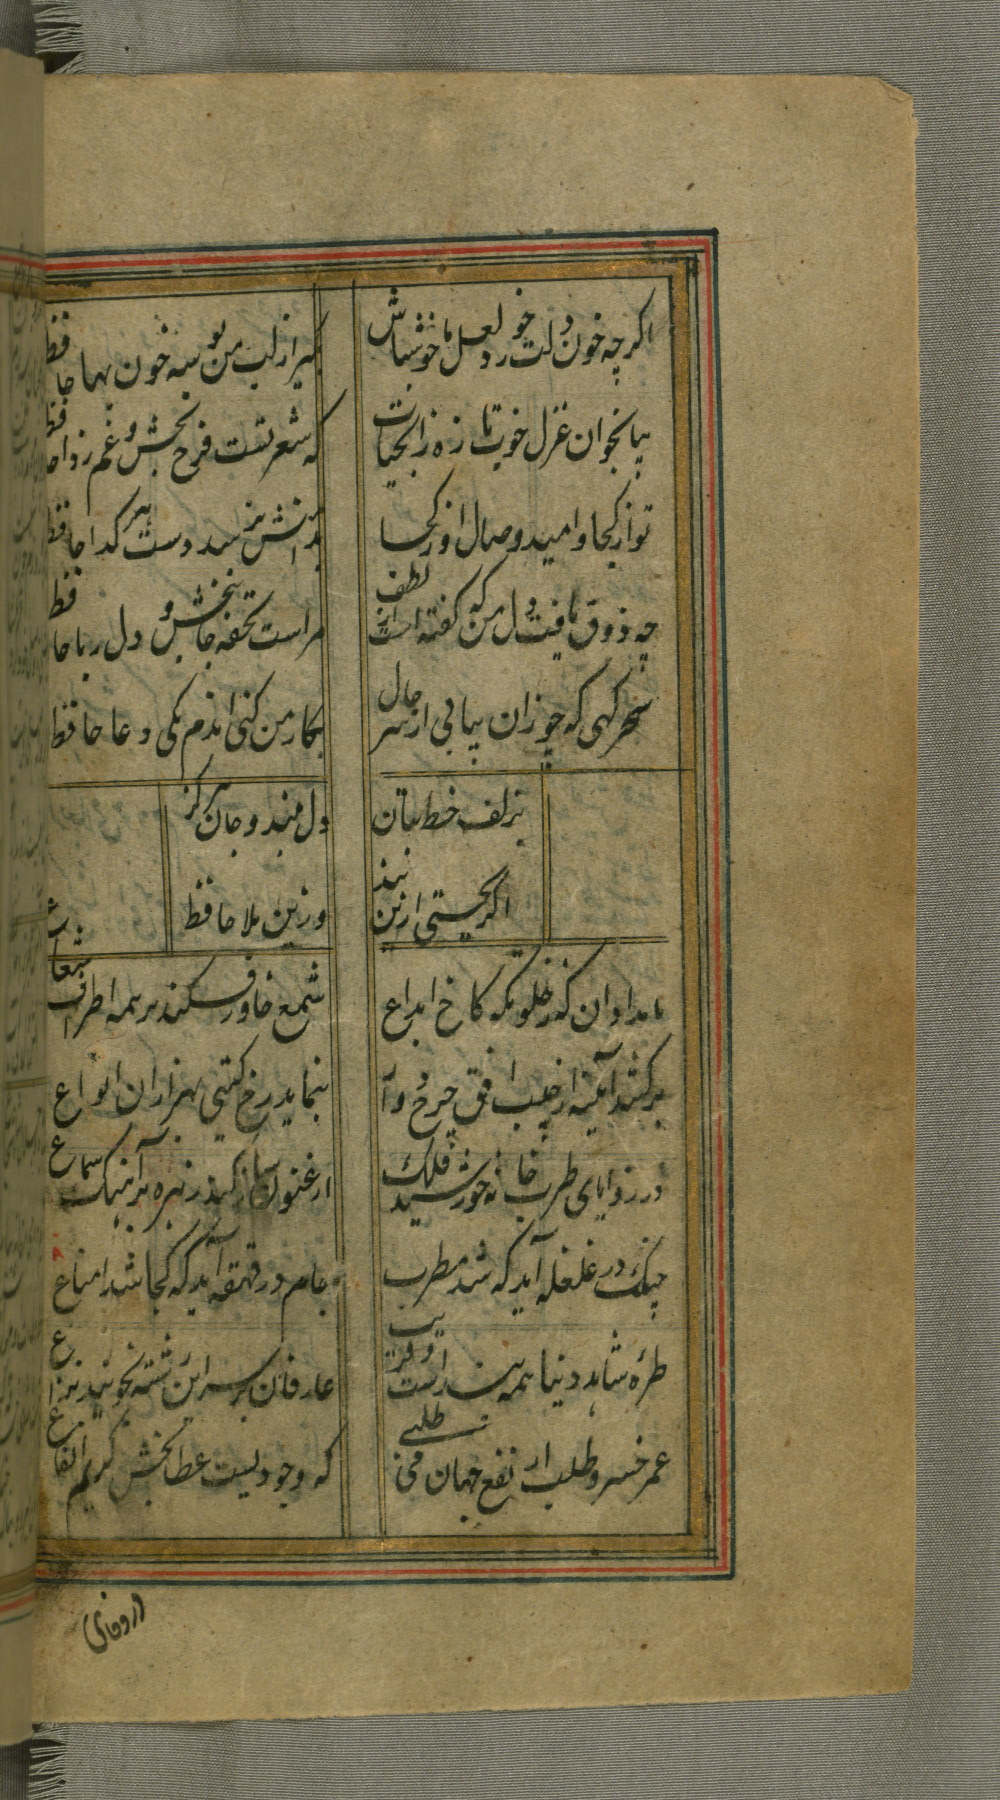 اگرچه خون دلت خورد لعل ما خوشباش
بگیر از لب من بوسه خون بها حافظ
بیا بخوان غزل خوب تازه زابحیات
که شعر تست فرح بخش و غم زدا حافظ
تو از کجا و امید وصال او ز کجا
بدامنش نرسد دست هر گدا حافظ
چه ذوق یافت دل من که گفته است از لطف
مراست تحفه جان بخش و دل ربا حافظ
سحرگهی که چو زان بیابی از سر حال
بکار من کنی اندم یکی دعا حافظ
بزلف خط بتان
دل مبند و جان هرگز
اگر بجستی ازین بند
و زین بلا حافظ
بامدادان که ز خلوتگه کاخ ابداع
شمع خاور فکند بر همه اطراف شعاع
برکشد آینه از جیب افق چرخ و آ
بنماید رخ گیتی بهزاران انواع
در زوایای طرب خانه خورشید فلک
ارغنون ساز کند زهره بر آهنک سماع
چنک در غلغله آید که کجا شد مطرب
جام در قهقهه آید که کجا شد مناع
طره شاهد دنیا همه بند است و فریب
عارفان بر سر این رشته نجویند نزاع
عمر خسرو طلب ار نفع جهان می طلبی
که وجودیست عطابخش کریم انفاع